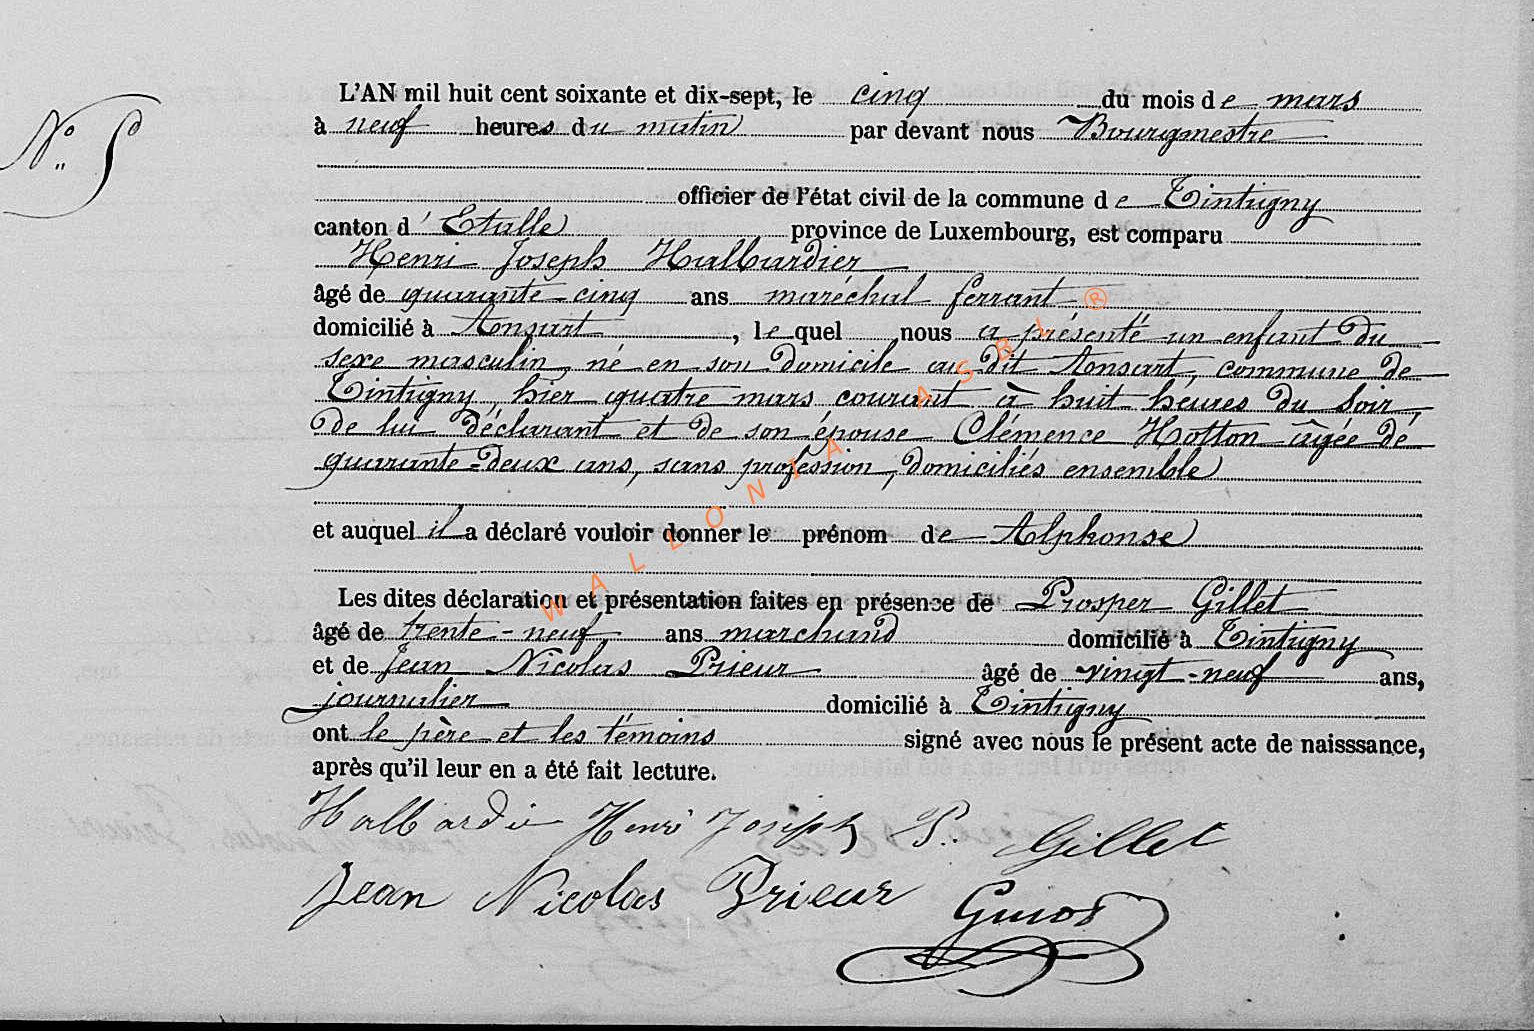 L'AN mil huit cent soixante et dix-sept, le cinq du mois de mars
à neuf heures du matin par devant nous Bourgmestre
officier de l'état civil de la commune de Tintigny
canton d'Etalle province de Luxembourg, est comparu
Henri Joseph Halbardier
âgé de quarante-cinq ans maréchal ferrant
domicilié à Ansart, lequel nous a présenté un enfant du
sexe masculin, né en son domicile au dit Ansart, commune de
Tintigny, hier quatre mars courant à huit heures du soir,
de lui déclarant et de son épouse Clémence Hotton âgée de
quarante-deux ans, sans profession, domiciliés ensemble
et auquel il a déclaré vouloir donner le prénom de Alphonse
Les dites déclaration et présentation faites en présence de Prosper Gillet
âgé de trente-neuf ans marchand domicilié à Tintigny
et de Jean Nicolas Prieur âgé de vingt-neuf ans,
journalier domicilié à Tintigny
ont le père et les témoins signé avec nous le présent acte de naisssance,
après qu'il leur en a été fait lecture.
Halbardie Henri Joseph P. Gillet
Jean Nicolas Prieur
WALLONIA ASBL ®